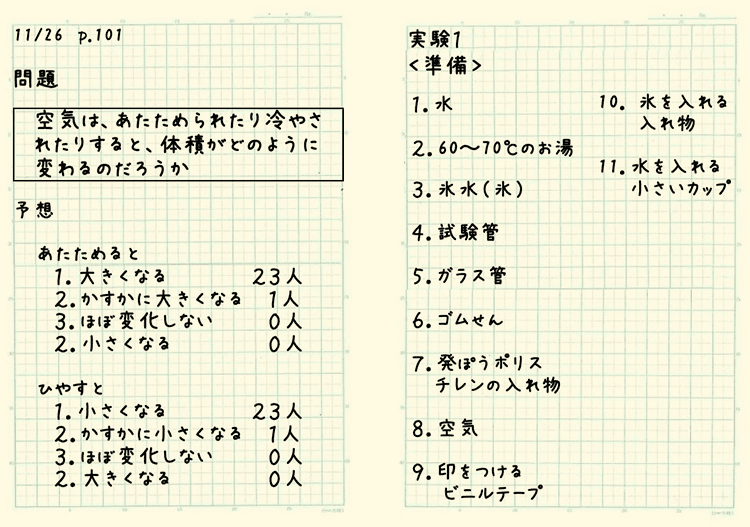 11/26 p.101
問題
空気は、あたためられたり冷やさ
れたりすると、体積がどのように
変わるのだろうか
予想
あたためると
1. 大きくなる 23人
2. かすかに大きくなる 1人
3. ほぼ変化しない 0人
2. 小さくなる 0人
ひやすと
1. 小さくなる 23人
2. かすかに小さくなる 1人
3. ほぼ変化しない 0人
2. 大きくなる 0人
実験1
<準備>
1. 水
2. 60〜70℃のお湯
3. 氷水(氷)
4. 試験管
5. ガラス管
6. ゴムせん
7. 発ぽうポリス
チレンの入れ物
8. 空気
9. 印をつける
ビニルテープ
10. 氷を入れる
入れ物
11. 水を入れる
小さいカップ